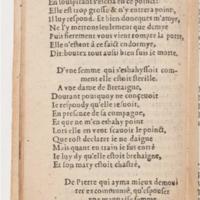 En souspirant s'escria en ce point:
Elle est trop grosse & n'y entrera point,
Il luy respond. Et bien doncques m'amye,
Ne m'y mettons seulement que demye
Puis fierement vous vient rompre la porte,
Elle n'estoit à ce faict endormye,
Dit: boutez tout aussi bien suis ie morte.
D'vne femme qui s'esbahyssoit com-
ment elle estoit sterille.
A vne dame de Bretaigne,
Dourant pourquoy ne conçeuoit
Ie respondy qu'elle resuoit,
En presence de la compagne,
Et que ne m'en esbahy point
Lors elle en vent sçauoir le poinct,
Que tost declarer ie ne daigne
Mais quant en train ie fus entré
Ie luy dy qu'elle estoit brehaigne,
Et son mary estoit chastré.
De Pierre qui ayma mieux demou-
rer excommunié, qu'espouser